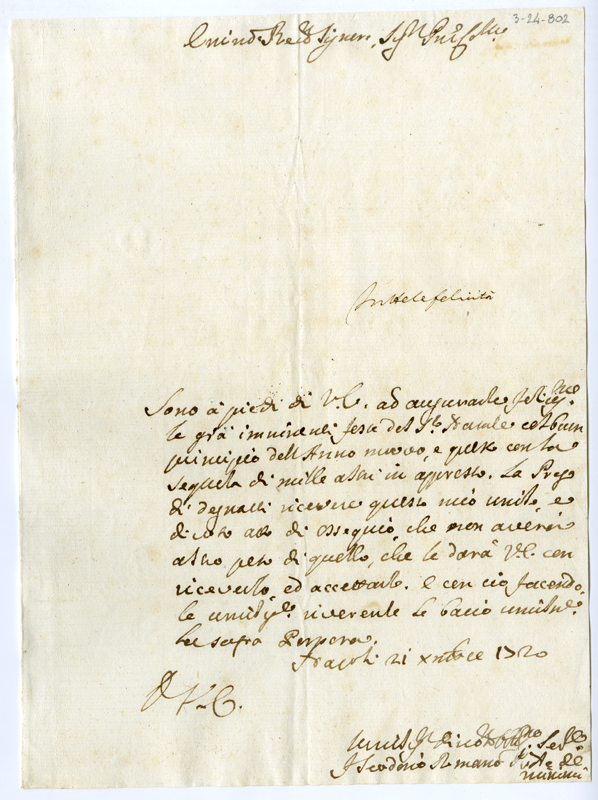 3-24-802
Emin.mo e Rev.mo Signore, Sig.r Pne Col.mo
Sono à piedi di V.E. ad augurarle felicis.me
le già imminenti feste del S.to Natale col buon
principio dell'Anno nuovo, e queste con la
sequela di mille altri in appresso. La Prego
di degnarsi ricevere questo mio umile, e
atto di ossequio, che non averà
altro peso di quello, che le darà V.E. con
riceverlo, ed accettarlo. e con ciò facendo
le umilis.e riverente le bacio umilm.e
la sacra Porpora.
Napoli 21 xmbre 1720
D V.E.
Umilis.o Ser.e
F Teodosio Romano de
minimi